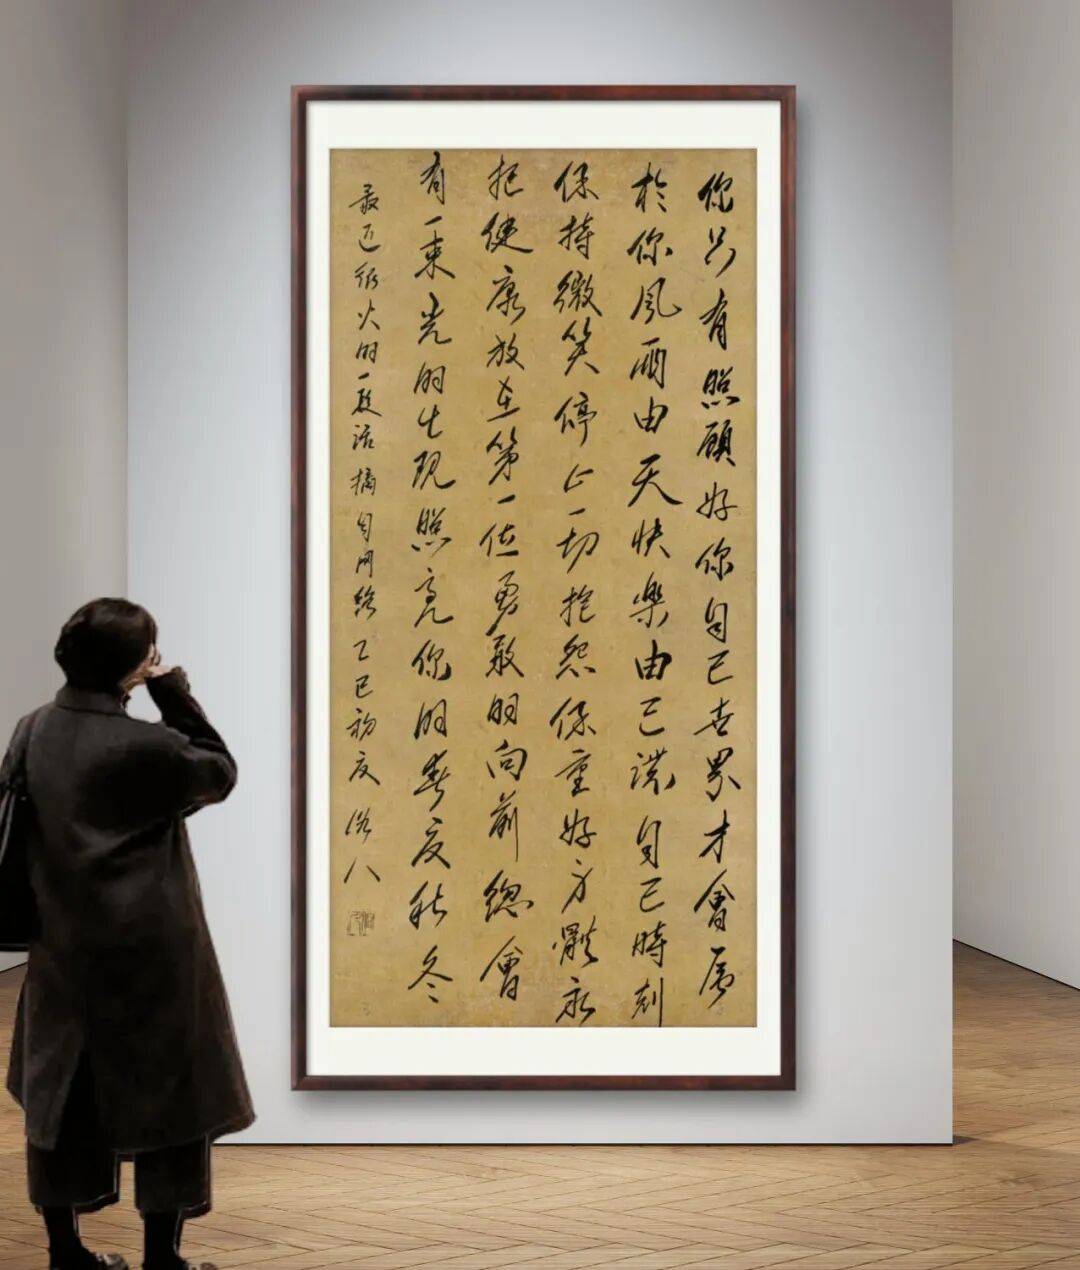 你只有照顧好你自己世界才會属
於你風雨由天快樂由己讓自己時刻
保持微笑停止一切抱怨保重好身體永
把健康放在第一位勇敢的向前總會
有一束光的出现照亮你的春夏秋冬
最近很火的一段话摘自网络乙巳初夏